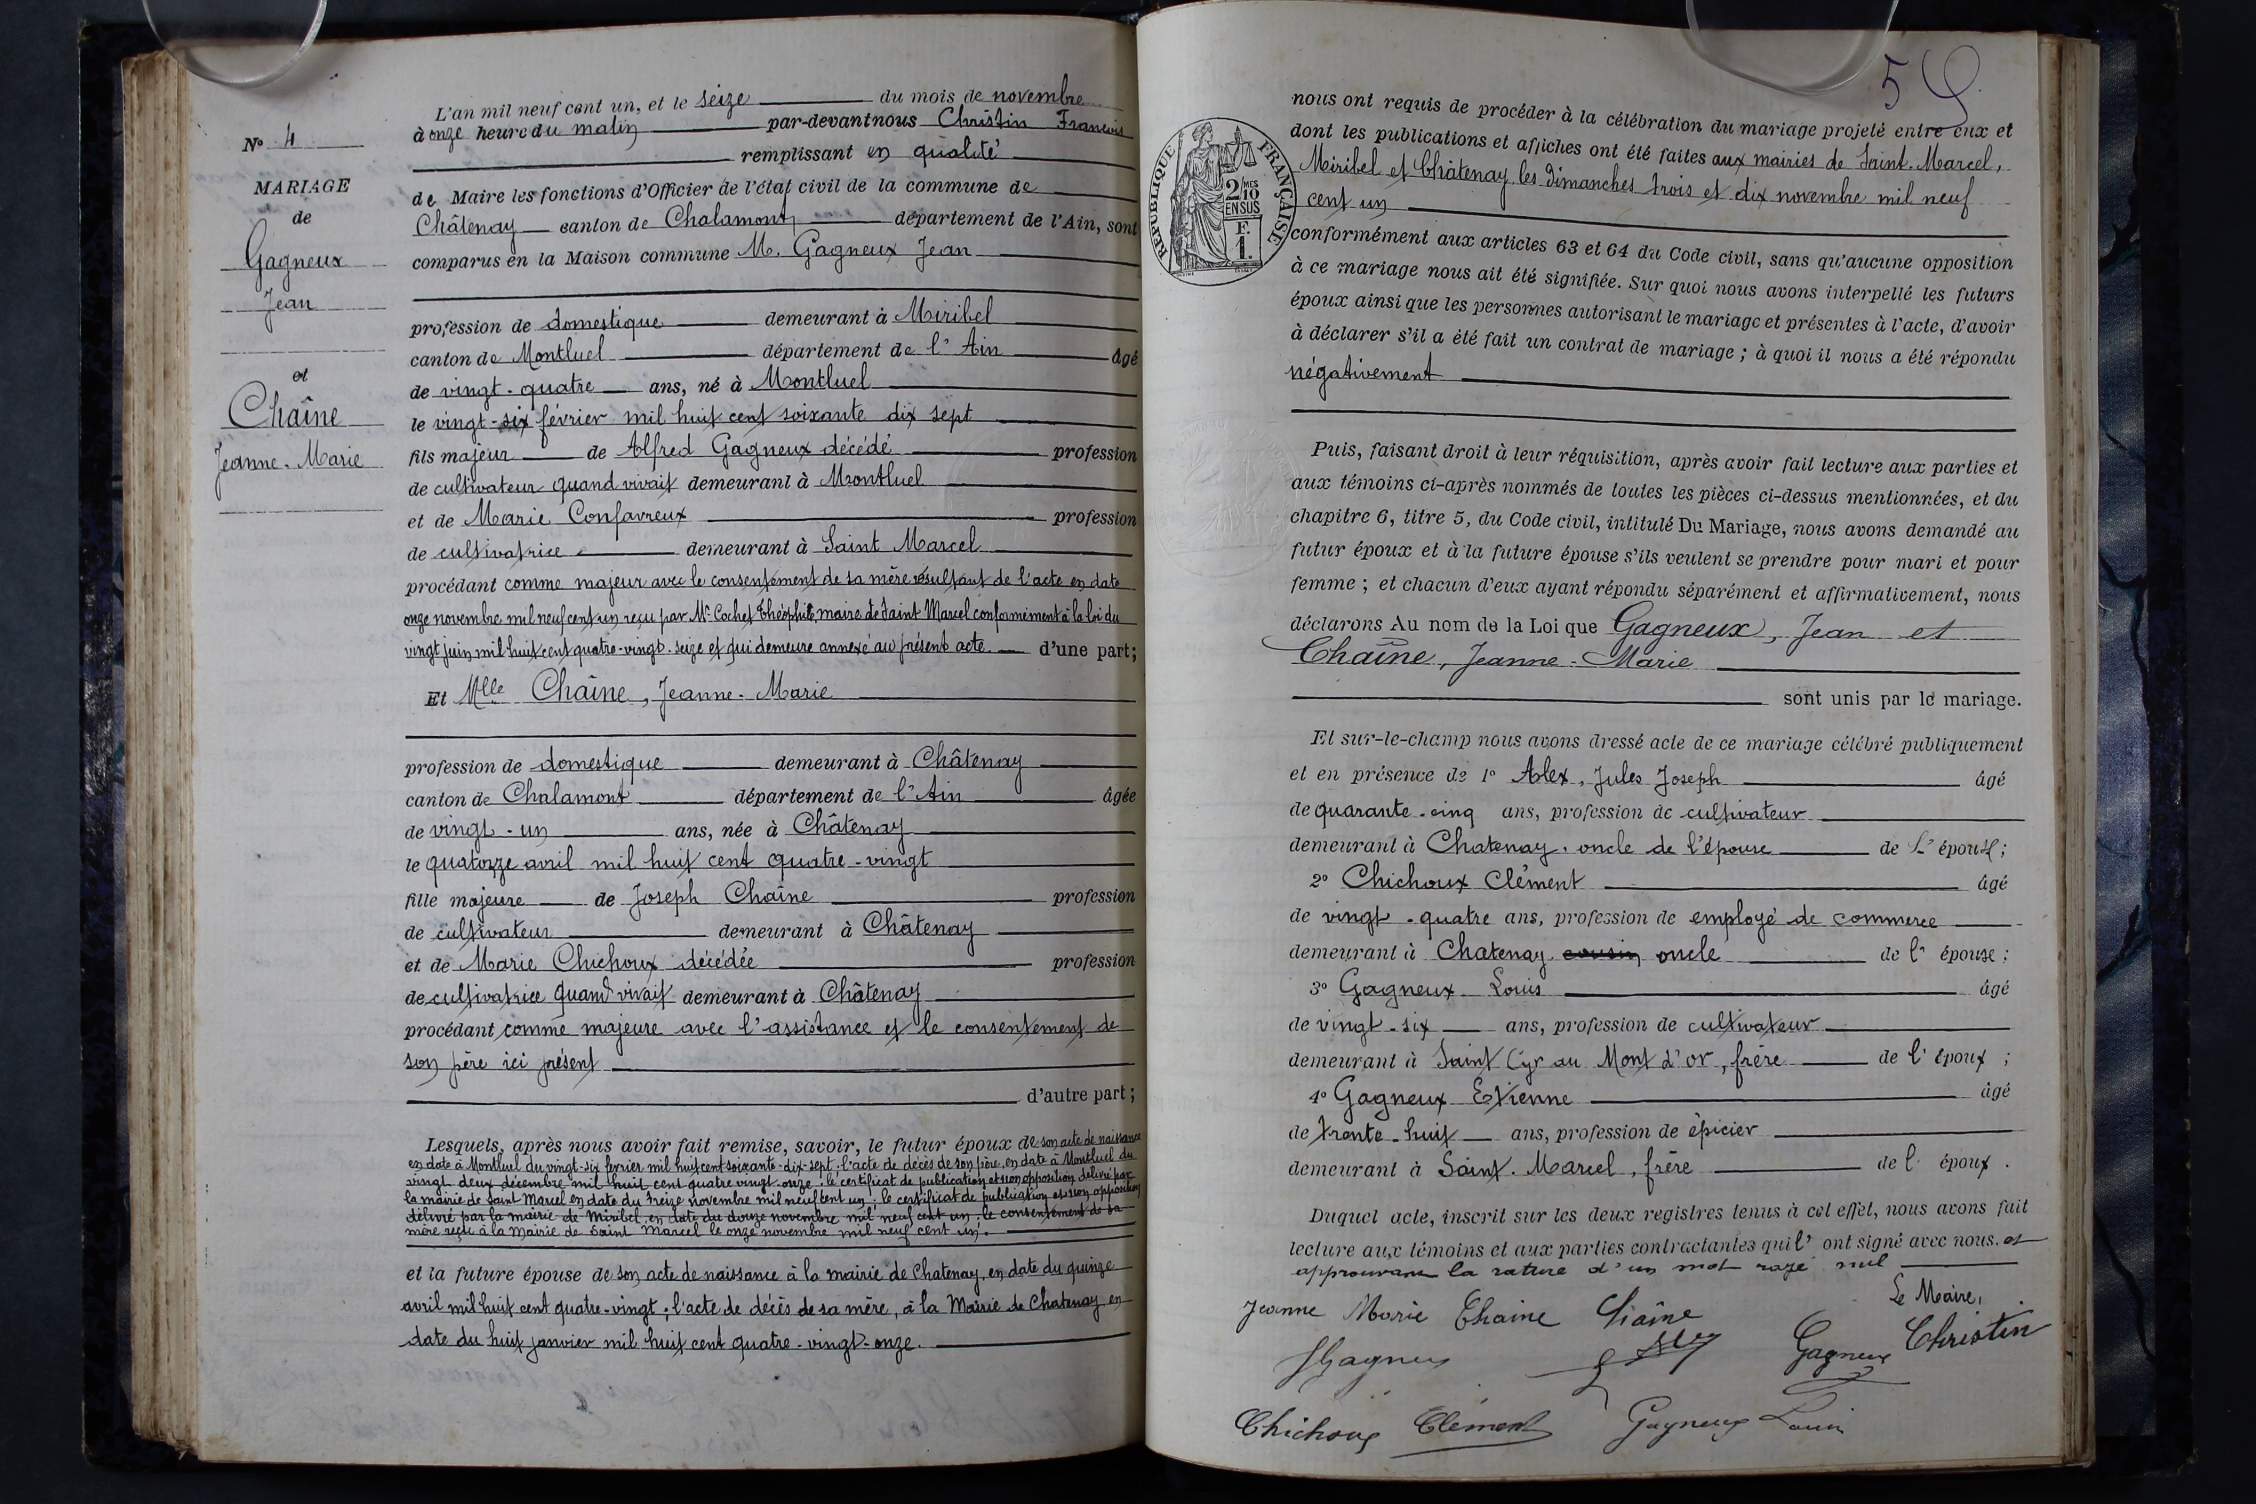 L'an mil neuf cent un, et le seize du mois de novembre
à onze heure du matin par-devant nous Christin François
remplissant en qualité
de Maire les fonctions d'Officier de l'état civil de la commune de
Châtenay canton de Chalamont département de l'Ain, sont
comparus en la Maison commune M. Gagneux Jean
profession de domestique demeurant à Miribel
canton de Montluel département de l'Ain âgé
de vingt-quatre ans, né à Montluel
le vingt-six février mil huit cent soixante dix sept
fils majeur de Alfred Gagneux décédé profession
de cultivateur quand vivait demeurant à Montluel
et de Marie Confavreux profession
de cultivatrice demeurant à Saint Marcel
procédant comme majeur avec le consentement de sa mère résultant de l'acte en date
onze novembre mil neuf cent un reçu par Mr Cochet Théophile, maire de Saint Marcel conformément à la loi du
vingt juin mil huit cent quatre-vingt-seize et qui demeure annexé au présent acte d'une part;
Et Mlle Chaîne, Jeanne-Marie
profession de domestique demeurant à Châtenay
canton de Chalamont département de l'Ain âgée
de vingt-un ans, née à Châtenay
le quatorze avril mil huit cent quatre-vingt
fille majeure de Joseph Chaîne profession
de cultivateur demeurant à Châtenay
et de Marie Chichoux décédée profession
de cultivatrice quand vivait demeurant à Châtenay
procédant comme majeure avec l'assistance et le consentement de
son père ici présent
d'autre part;
Lesquels, après nous avoir fait remise, savoir, le futur époux de son acte de naissance
en date à Montluel du vingt-six fevrier mil huit cent soixante-dix-sept; l'acte de décès de son père, en date à Montluel du
vingt deux décembre mil huit cent quatre vingt-onze; le certificat de publication et non opposition délivré par
la mairie de Saint Marcel en date du treize novembre mil neuf cent un; le certificat de publication et non opposition
délivré par la mairie de Miribel, en date du douze novembre mil neuf cent un. le consentement de sa
mère reçu à la Mairie de Saint Marcel le onze novembre mil neuf cent un.
et la future épouse de son acte de naissance à la mairie de Chatenay, en date du quinze
avril mil huit cent quatre-vingt; l'acte de décès de sa mère, à la Mairie de Chatenay en
date du huit janvier mil huit cent quatre-vingt-onze.
No 4
MARIAGE
de
Gagneux
Jean
et
Chaîne
Jeanne-Marie
5
RÉPUBLIQUE FRANÇAISE
2/10MES
EN SUS
F.
1.
nous ont requis de procéder à la célébration du mariage projeté entre eux et
dont les publications et affiches ont été faites aux mairies de Saint-Marcel,
Miribel et Châtenay les dimanches trois et dix novembre mil neuf
cent un
conformément aux articles 63 et 64 du Code civil, sans qu'aucune opposition
à ce mariage nous ait été signifiée. Sur quoi nous avons interpellé les futurs
époux ainsi que les personnes autorisant le mariage et présentes à l'acte, d'avoir
à déclarer s'il a été fait un contrat de mariage; à quoi il nous a été répondu
négativement
Puis, faisant droit à leur réquisition, après avoir fait lecture aux parties et
aux témoins ci-après nommés de toutes les pièces ci-dessus mentionnées, et du
chapitre 6, titre 5, du Code civil, intitulé Du Mariage, nous avons demandé au
futur époux et à la future épouse s'ils veulent se prendre pour mari et pour
femme; et chacun d'eux ayant répondu séparément et affirmativement, nous
déclarons Au nom de la Loi que Gagneux, Jean et
Chaîne, Jeanne-Marie
sont unis par le mariage.
Et sur-le-champ nous avons dressé acte de ce mariage célébré publiquement
et en présence de 1o Alex, Jules Joseph âgé
de quarante-cinq ans, profession de cultivateur
demeurant à Chatenay, oncle de l'épouse de L'épouse;
2o Chichoux Clément âgé
de vingt-quatre ans, profession de employé de commerce
demeurant à Chatenay cousin oncle de l'épouse;
3o Gagneux Louis âgé
de vingt-six ans, profession de cultivateur
demeurant à Saint Cyr au Mont d'or, frère de l'époux;
4o Gagneux Etienne âgé
de trente-huit ans, profession de épicier
demeurant à Saint-Marcel, frère de l'époux.
Duquel acte, inscrit sur les deux registres tenus à cet effet, nous avons fait
lecture aux témoins et aux parties contractantes qui l'ont signé avec nous. et
approuvant la rature d'un mot rayé nul
Le Maire,
Jeanne Marie Chaine Chaîne
JGagneux Gagneux Christin
Chichoux Clément Gagneux Louis